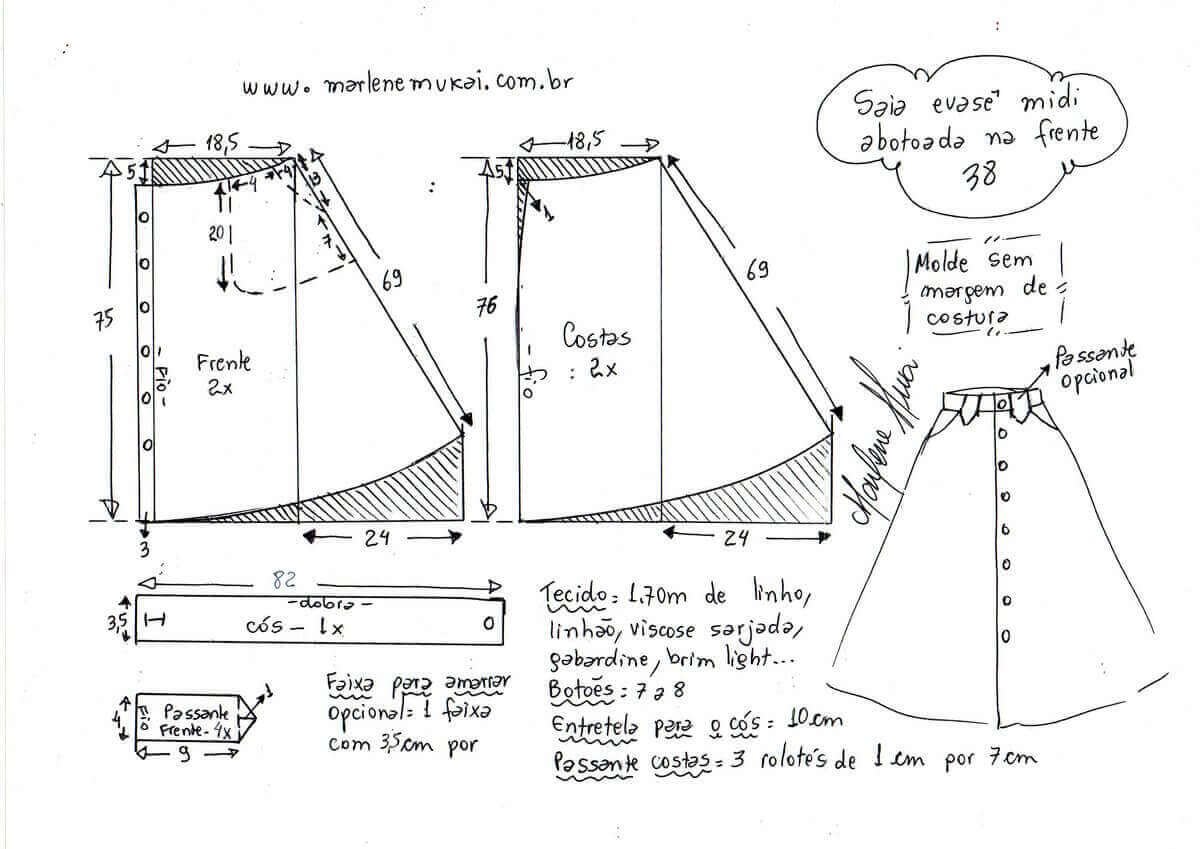 www.marlenemukai.com.br
Saia evasê midi
abotoada na frente
38
18,5
5
4
4
3
7
20
69
75
Frente
2x
Fio
3
24
18,5
5
1
69
76
Costas
2x
Fio
24
Molde sem
margem de
costura
Marlene Mukai
Passante
opcional
82
3,5
-dobra-
cós - 1x
4
Fio
Passante
Frente - 4x
1
9
Faixa para amarrar
Opcional= 1 faixa
com 3,5cm por
Tecido= 1.70m de linho,
linhão, viscose sarjada,
gabardine, brim light...
Botões= 7 a 8
Entretela para o cós= 10cm
Passante costas= 3 rolotés de 1cm por 7cm